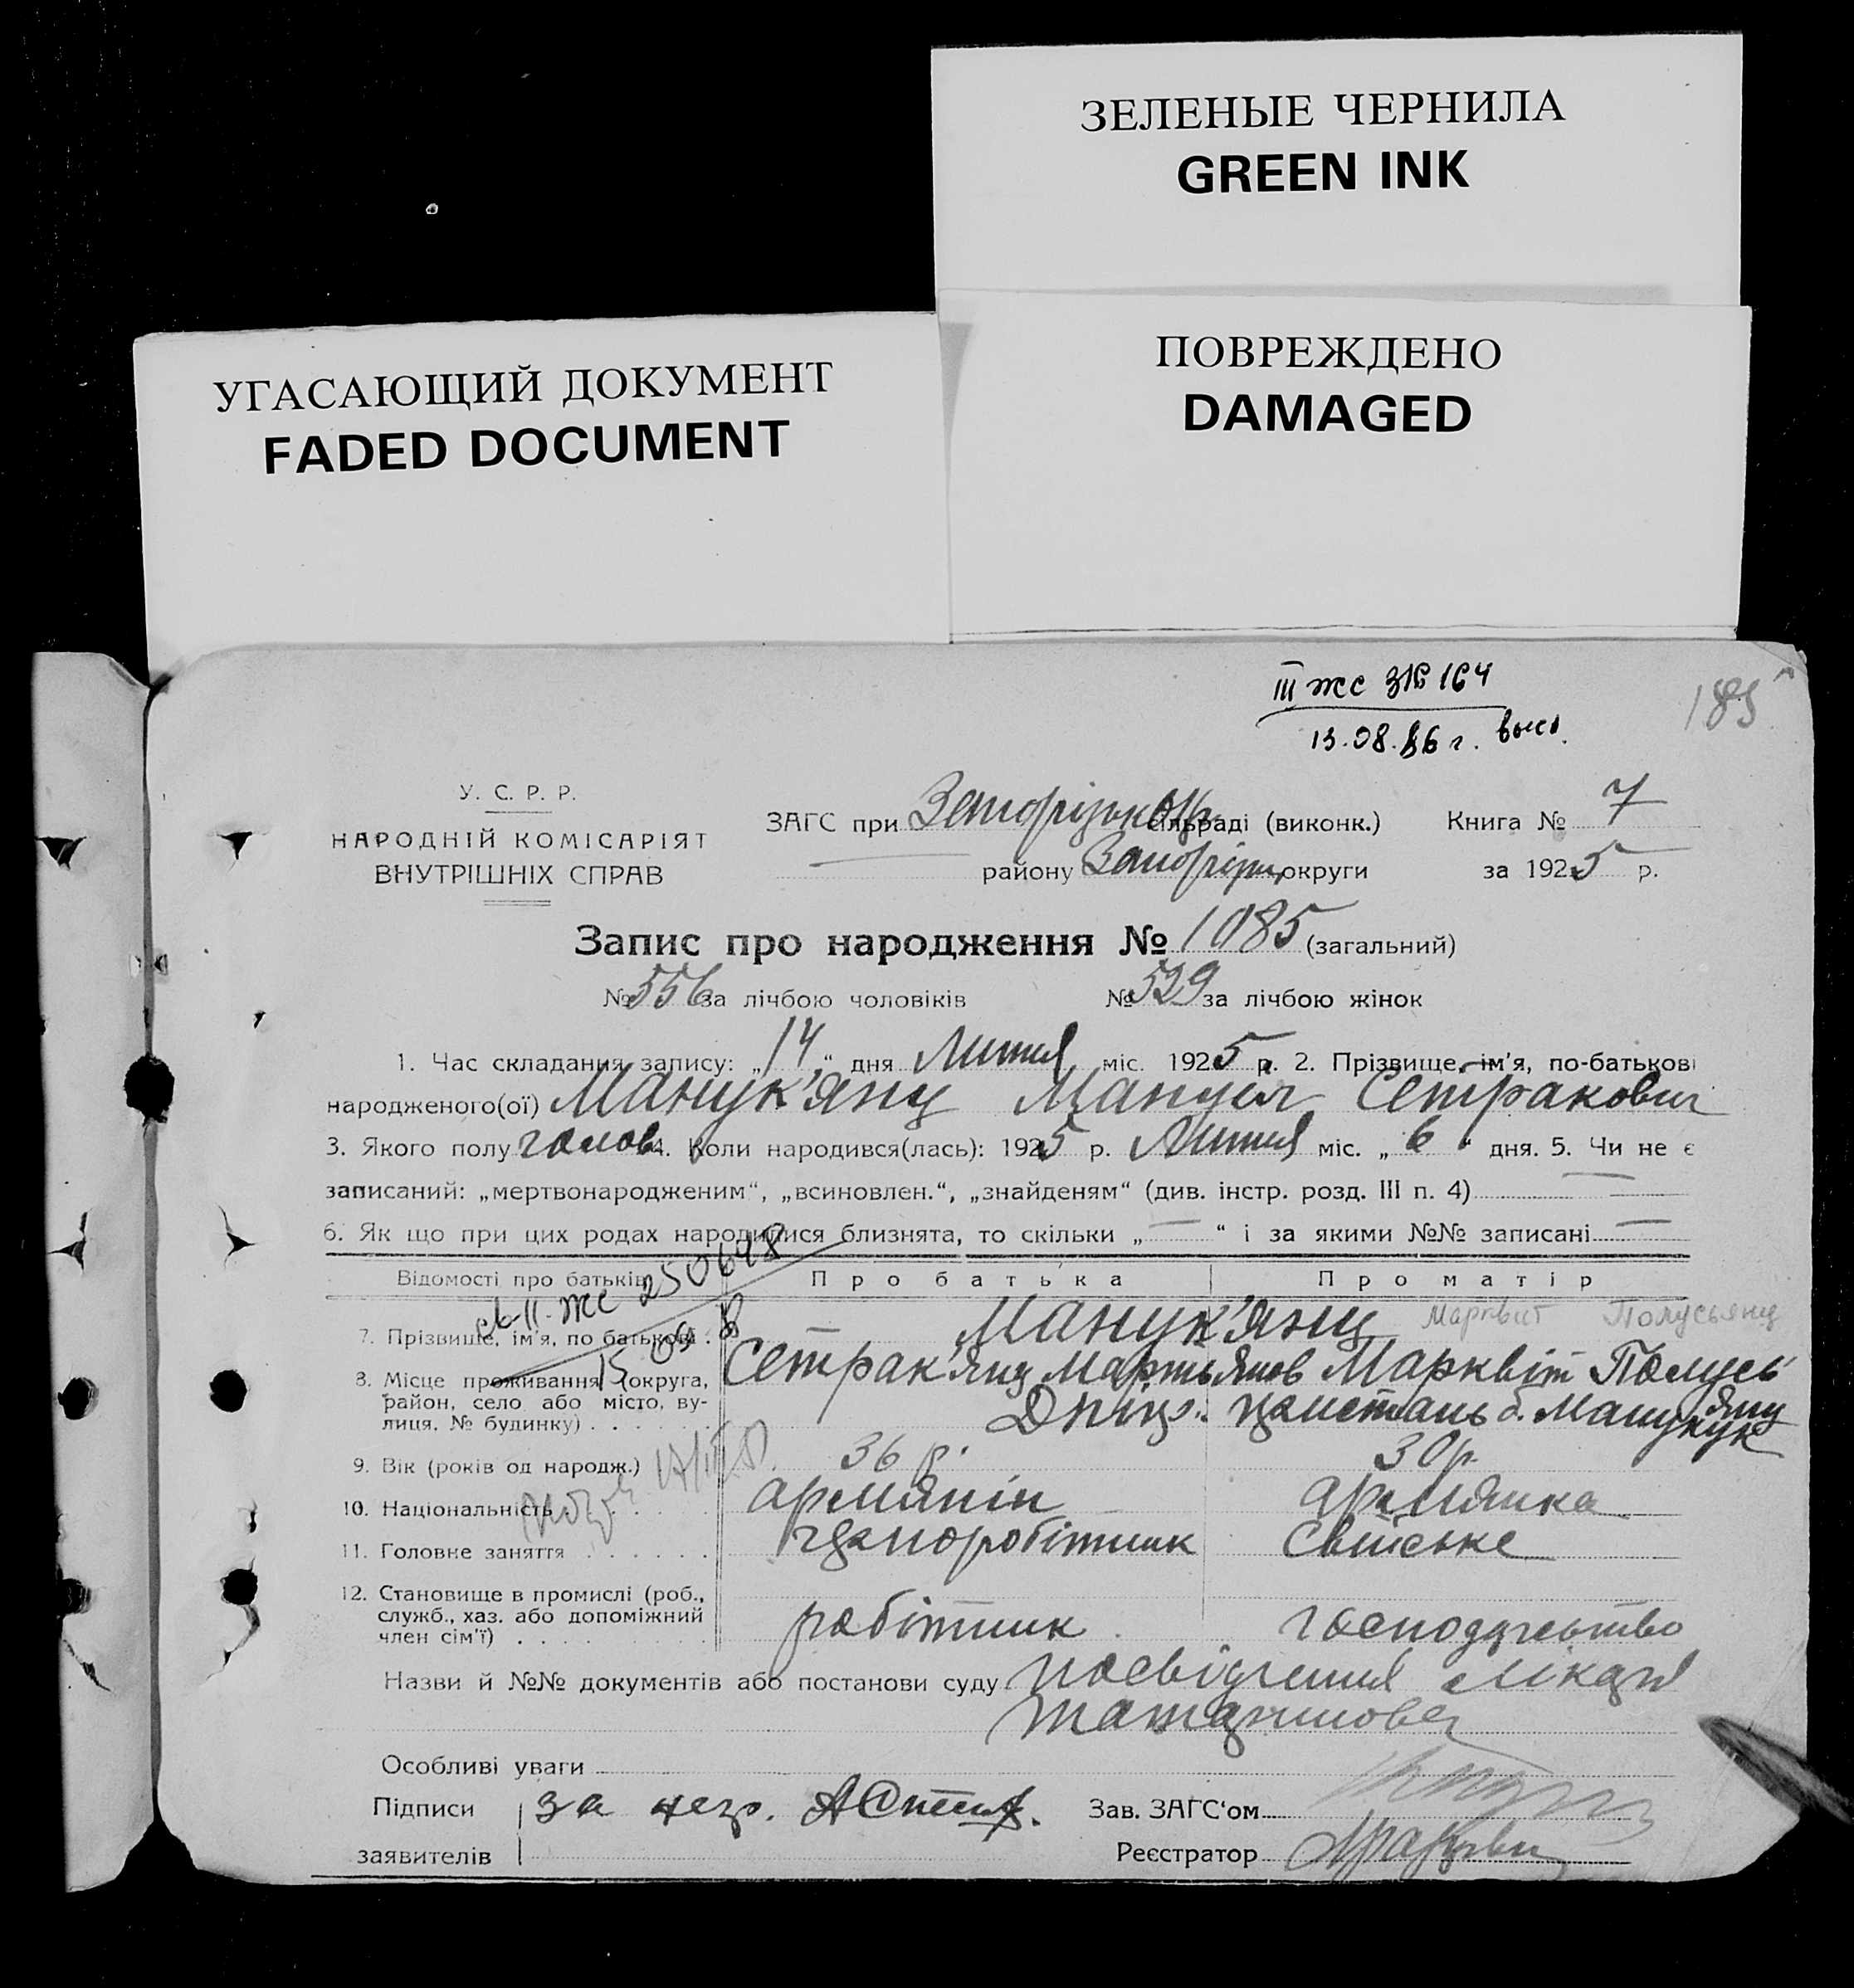 ЗЕЛЕНЫЕ ЧЕРНИЛА
GREEN INK
УГАСАЮЩИЙ ДОКУМЕНТ
FADED DOCUMENT
ПОВРЕЖДЕНО
DAMAGED
III жс № 164
13.08.86 г.
185
У. С. Р. Р.
НАРОДНІЙ КОМІСАРІЯТ
ВНУТРІШНІХ СПРАВ
ЗАГС при сільраді (виконк.) Книга № 7
району округи за 1925 р.
Запис про народження № 1085 (загальний)
№ 556 за лічбою чоловіків № 529 за лічбою жінок
1. Час складання запису: „14" дня Липня міс. 1925 р. 2. Прізвище, ім'я, по-батькові
народженого(ої) Манук'янц Мануел Сетракович
3. Якого полу чолов. 4. Коли народився(лась): 1925 р. Липня міс. „6" дня. 5. Чи не є
записаний: „мертвонародженим", „всиновлен.", „знайденям" (див. інстр. розд. III п. 4)
6. Як що при цих родах народилися близнята, то скільки „—" і за якими №№ записані —
Відомості про батьків Про батька Про матір
св. II-ЖС 250698
7. Прізвище, ім'я, по батькові Манук'янц Марквит Полусьянц
8. Місце проживання (округа, район, село або місто, вулиця, № будинку) Сетрак Марквіт Полусьянц
9. Вік (років од народж.) 36 р. 30 р.
10. Національність армянін армянка
11. Головне заняття чорноробітник Свійське
12. Становище в промислі (роб., служб., хаз. або допоміжний член сім'ї) робітник господарство
Назви й №№ документів або постанови суду посвідчення лікаря
Особливі уваги
Підписи за негр. Зав. ЗАГС'ом
заявителів Реєстратор